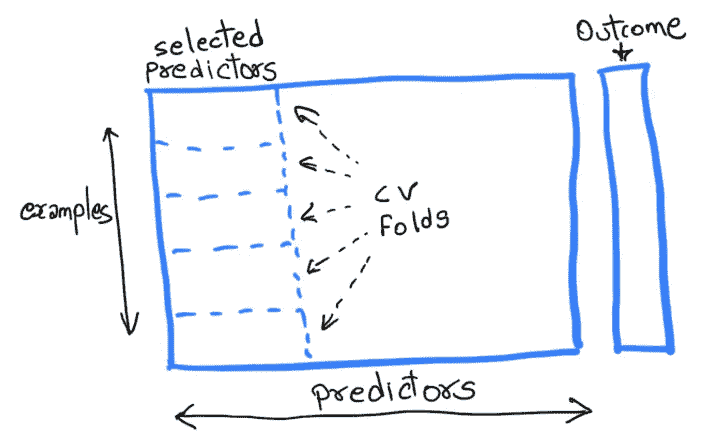 selected
predictors
outcome
examples
cv
Folds
predictors